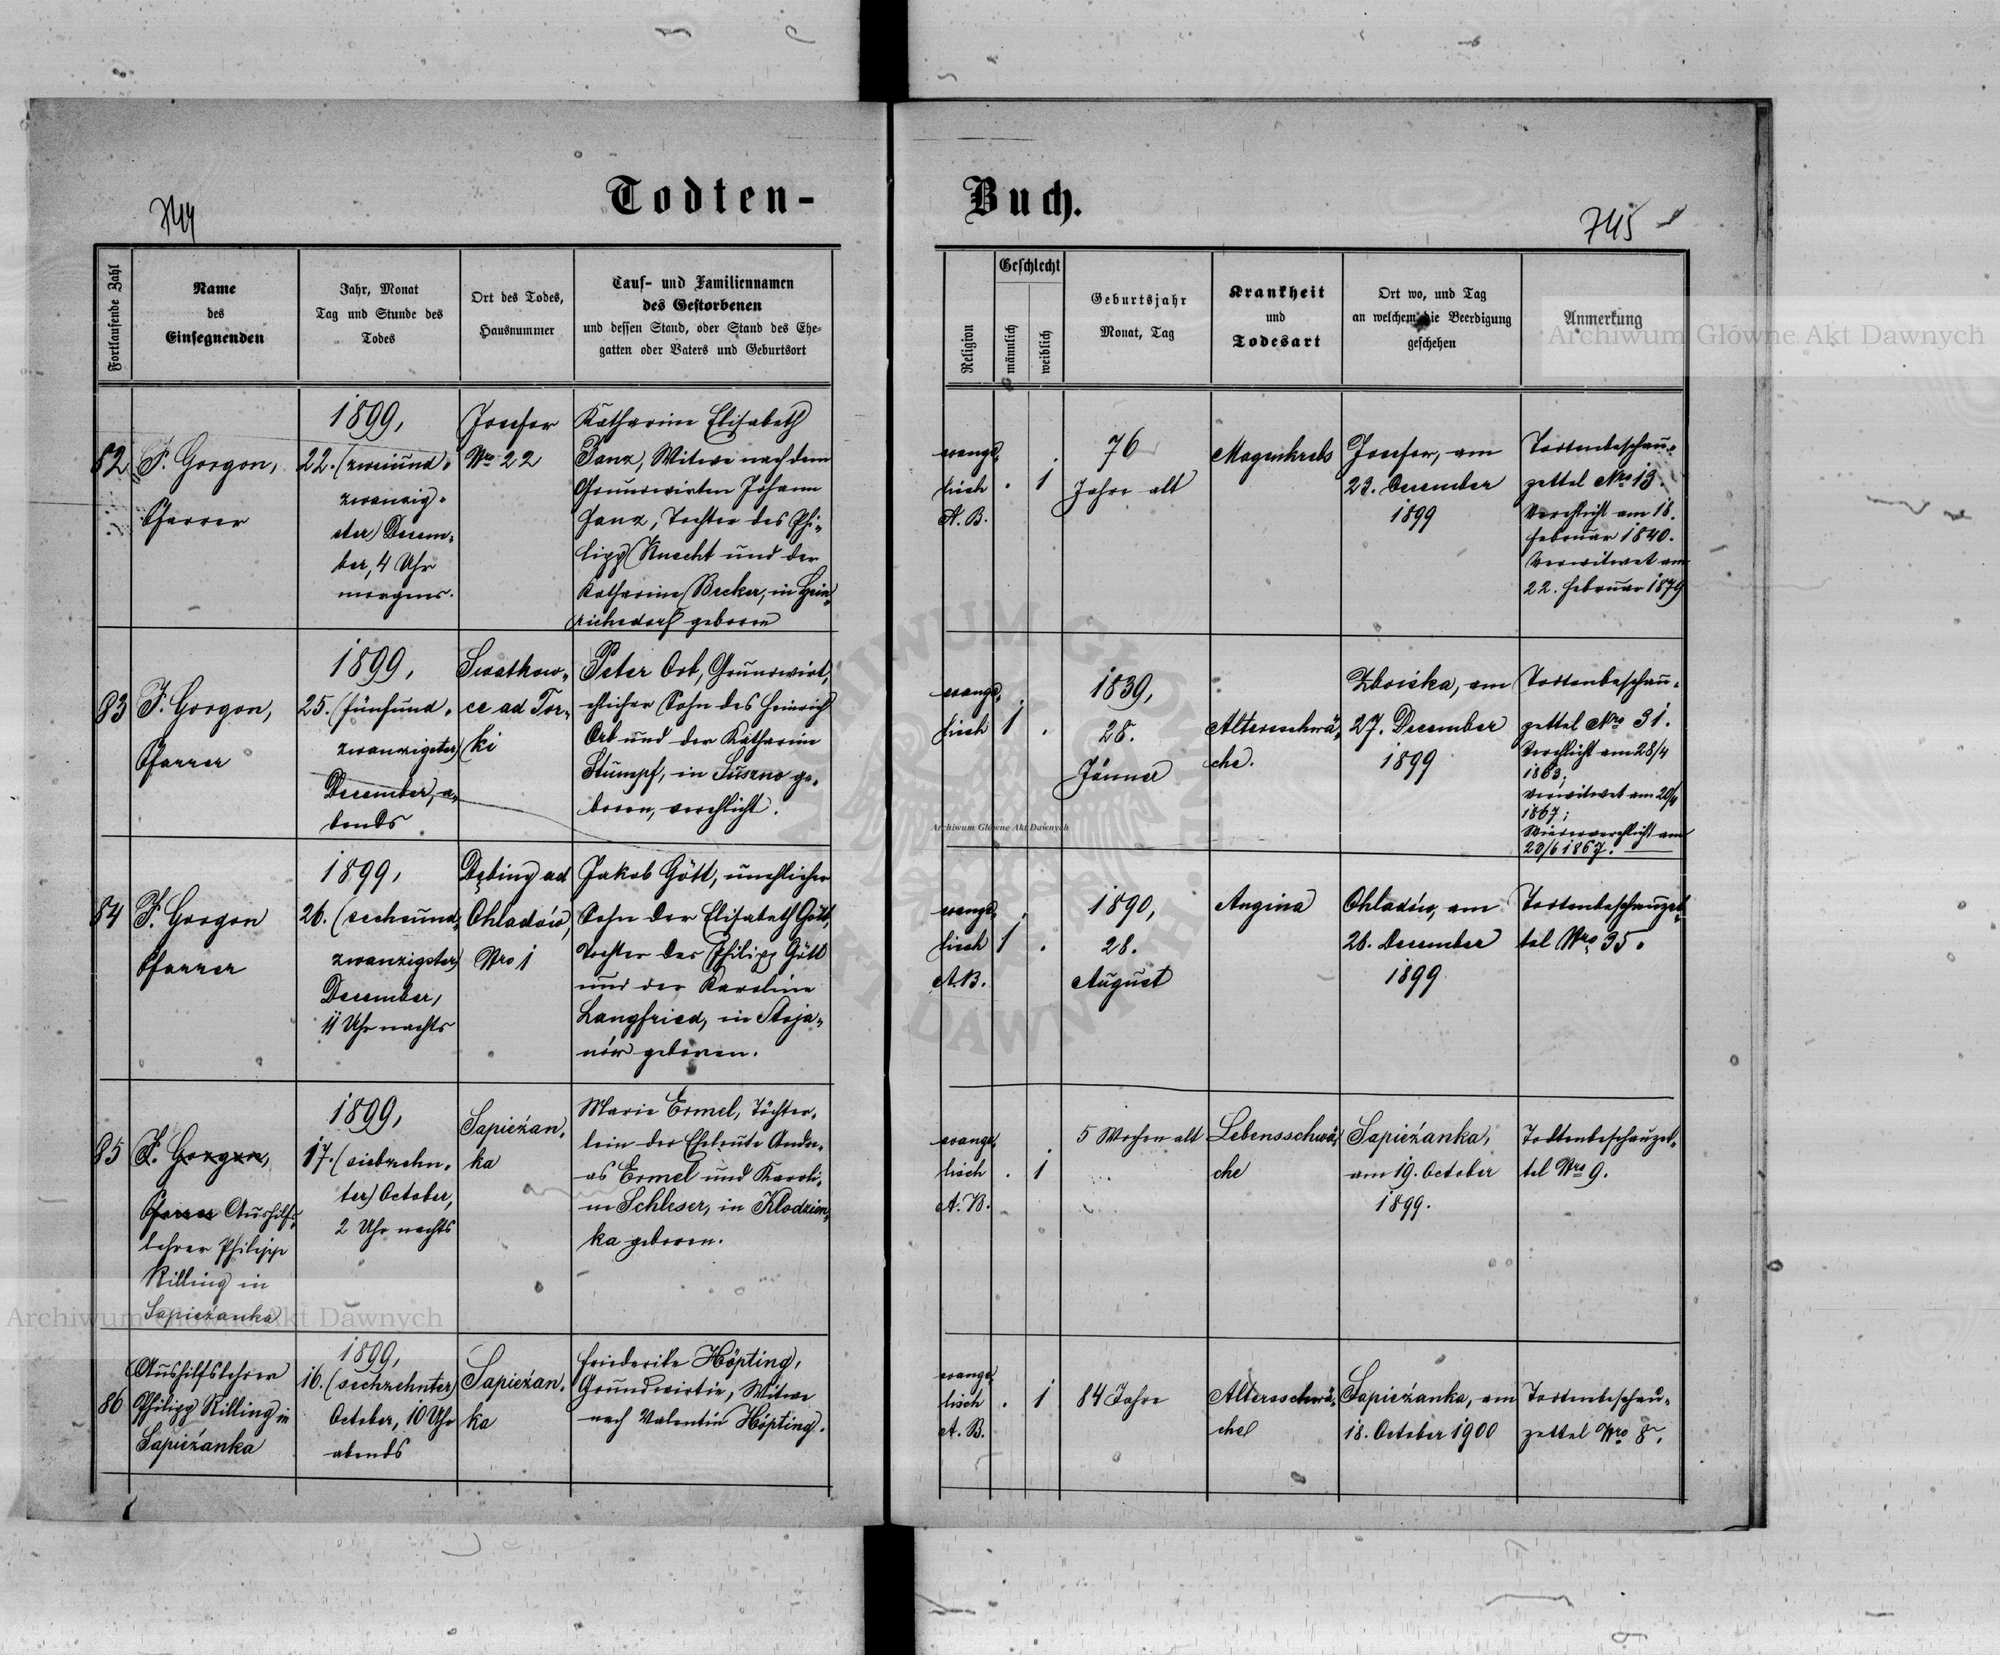 Todten-
Buch.
744
745
Fortlaufende Zahl
Name
des
Einsegnenden
Jahr, Monat
Tag und Stunde des
Todes
Ort des Todes,
Hausnummer
Tauf- und Familiennamen
des Gestorbenen
und dessen Stand, oder Stand des Ehe-
gatten oder Vaters und Geburtsort
Religion
Geschlecht
männlich
weiblich
Geburtsjahr
Monat, Tag
Krankheit
und
Todesart
Ort wo, und Tag
an welchem die Beerdigung
geschehen
Anmerkung
Archiwum Główne Akt Dawnych
82
F. Gorgon,
Pfarrer
1899,
22. (zweiund-
zwanzig-
ster) Decem-
ber, 4 Uhr
morgens.
Josefow
Nro 22
Katharine Elisabeth
Janz, Witwe nach dem
Grundwirten Johann
Janz, Tochter des Phi-
lipp Knecht und der
Katharine Becker, in Hein-
richsdorf geboren
evange-
lisch
A. B.
. 1
76
Jahre alt
Magenkrebs
Josefow, am
23. December
1899
Todtenbeschau-
zettel Nro 13.
Verehlicht am 18.
Februar 1840.
Verwitwet am
22. Februar 1879
83
F. Gorgon,
Pfarrer
1899,
25. (fünfund-
zwanzigster)
December, a-
bends
Swatkow-
ce ad Tor-
ki
Peter Orb, Grundwirt,
ehlicher Sohn des Heinrich
Orb und der Katharine
Stumpf, in Suszno ge-
boren, verehlicht.
evange-
lisch
1 .
1839,
28.
Jänner
Altersschwä-
che.
Zboiska, am
27. December
1899
Todtenbeschau-
zettel Nro 31.
Verehlicht am 28/4
1863;
Verwitwet am
1867;
Wiederverehlicht am
23/6 1867.
Archiwum Główne Akt Dawnych
84
F. Gorgon
Pfarrer
1899,
26. (sechsund-
zwanzigster)
December,
11 Uhr nachts
Dębiny ad
Ohladów,
Nro 1
Jakob Gött, unehlicher
Sohn der Elisabeth Gött,
Tochter des Philipp Gött
und der Karoline
Langfried, in Stoja-
nów geboren.
evange-
lisch
A. B.
1 .
1890,
28.
August
Angina
Ohladów, am
28. December
1899
Todtenbeschauzet-
tel Nro 35.
85
F. Gorgon,
Pfarrer Aushilfs-
lehrer Philipp
Rilling in
Sapieżanka
1899,
17. (siebzehn-
ter) October,
2 Uhr nachts
Sapieżan-
ka
Marie Ermel, Töchter-
lein der Eheleute Andre-
as Ermel und Karoli-
ne Schleser, in Kłodzien-
ka geboren.
evange-
lisch
A. B.
. 1
5 Wochen alt
Lebensschwä-
che
Sapieżanka,
am 19. October
1899.
Todtenbeschauzet-
tel Nro 9.
Archiwum Główne Akt Dawnych
86
Aushilfslehrer
Philipp Rilling in
Sapieżanka
1899,
16. (sechzehnter)
October, 10 Uhr
abends
Sapieżan-
ka
Friederike Höpting,
Grundwirtin, Witwe
nach Valentin Höpting.
evange-
lisch
A. B.
. 1
84 Jahre
Altersschwä-
che
Sapieżanka, am
18. October 1900
Todtenbeschau-
zettel Nro 8.